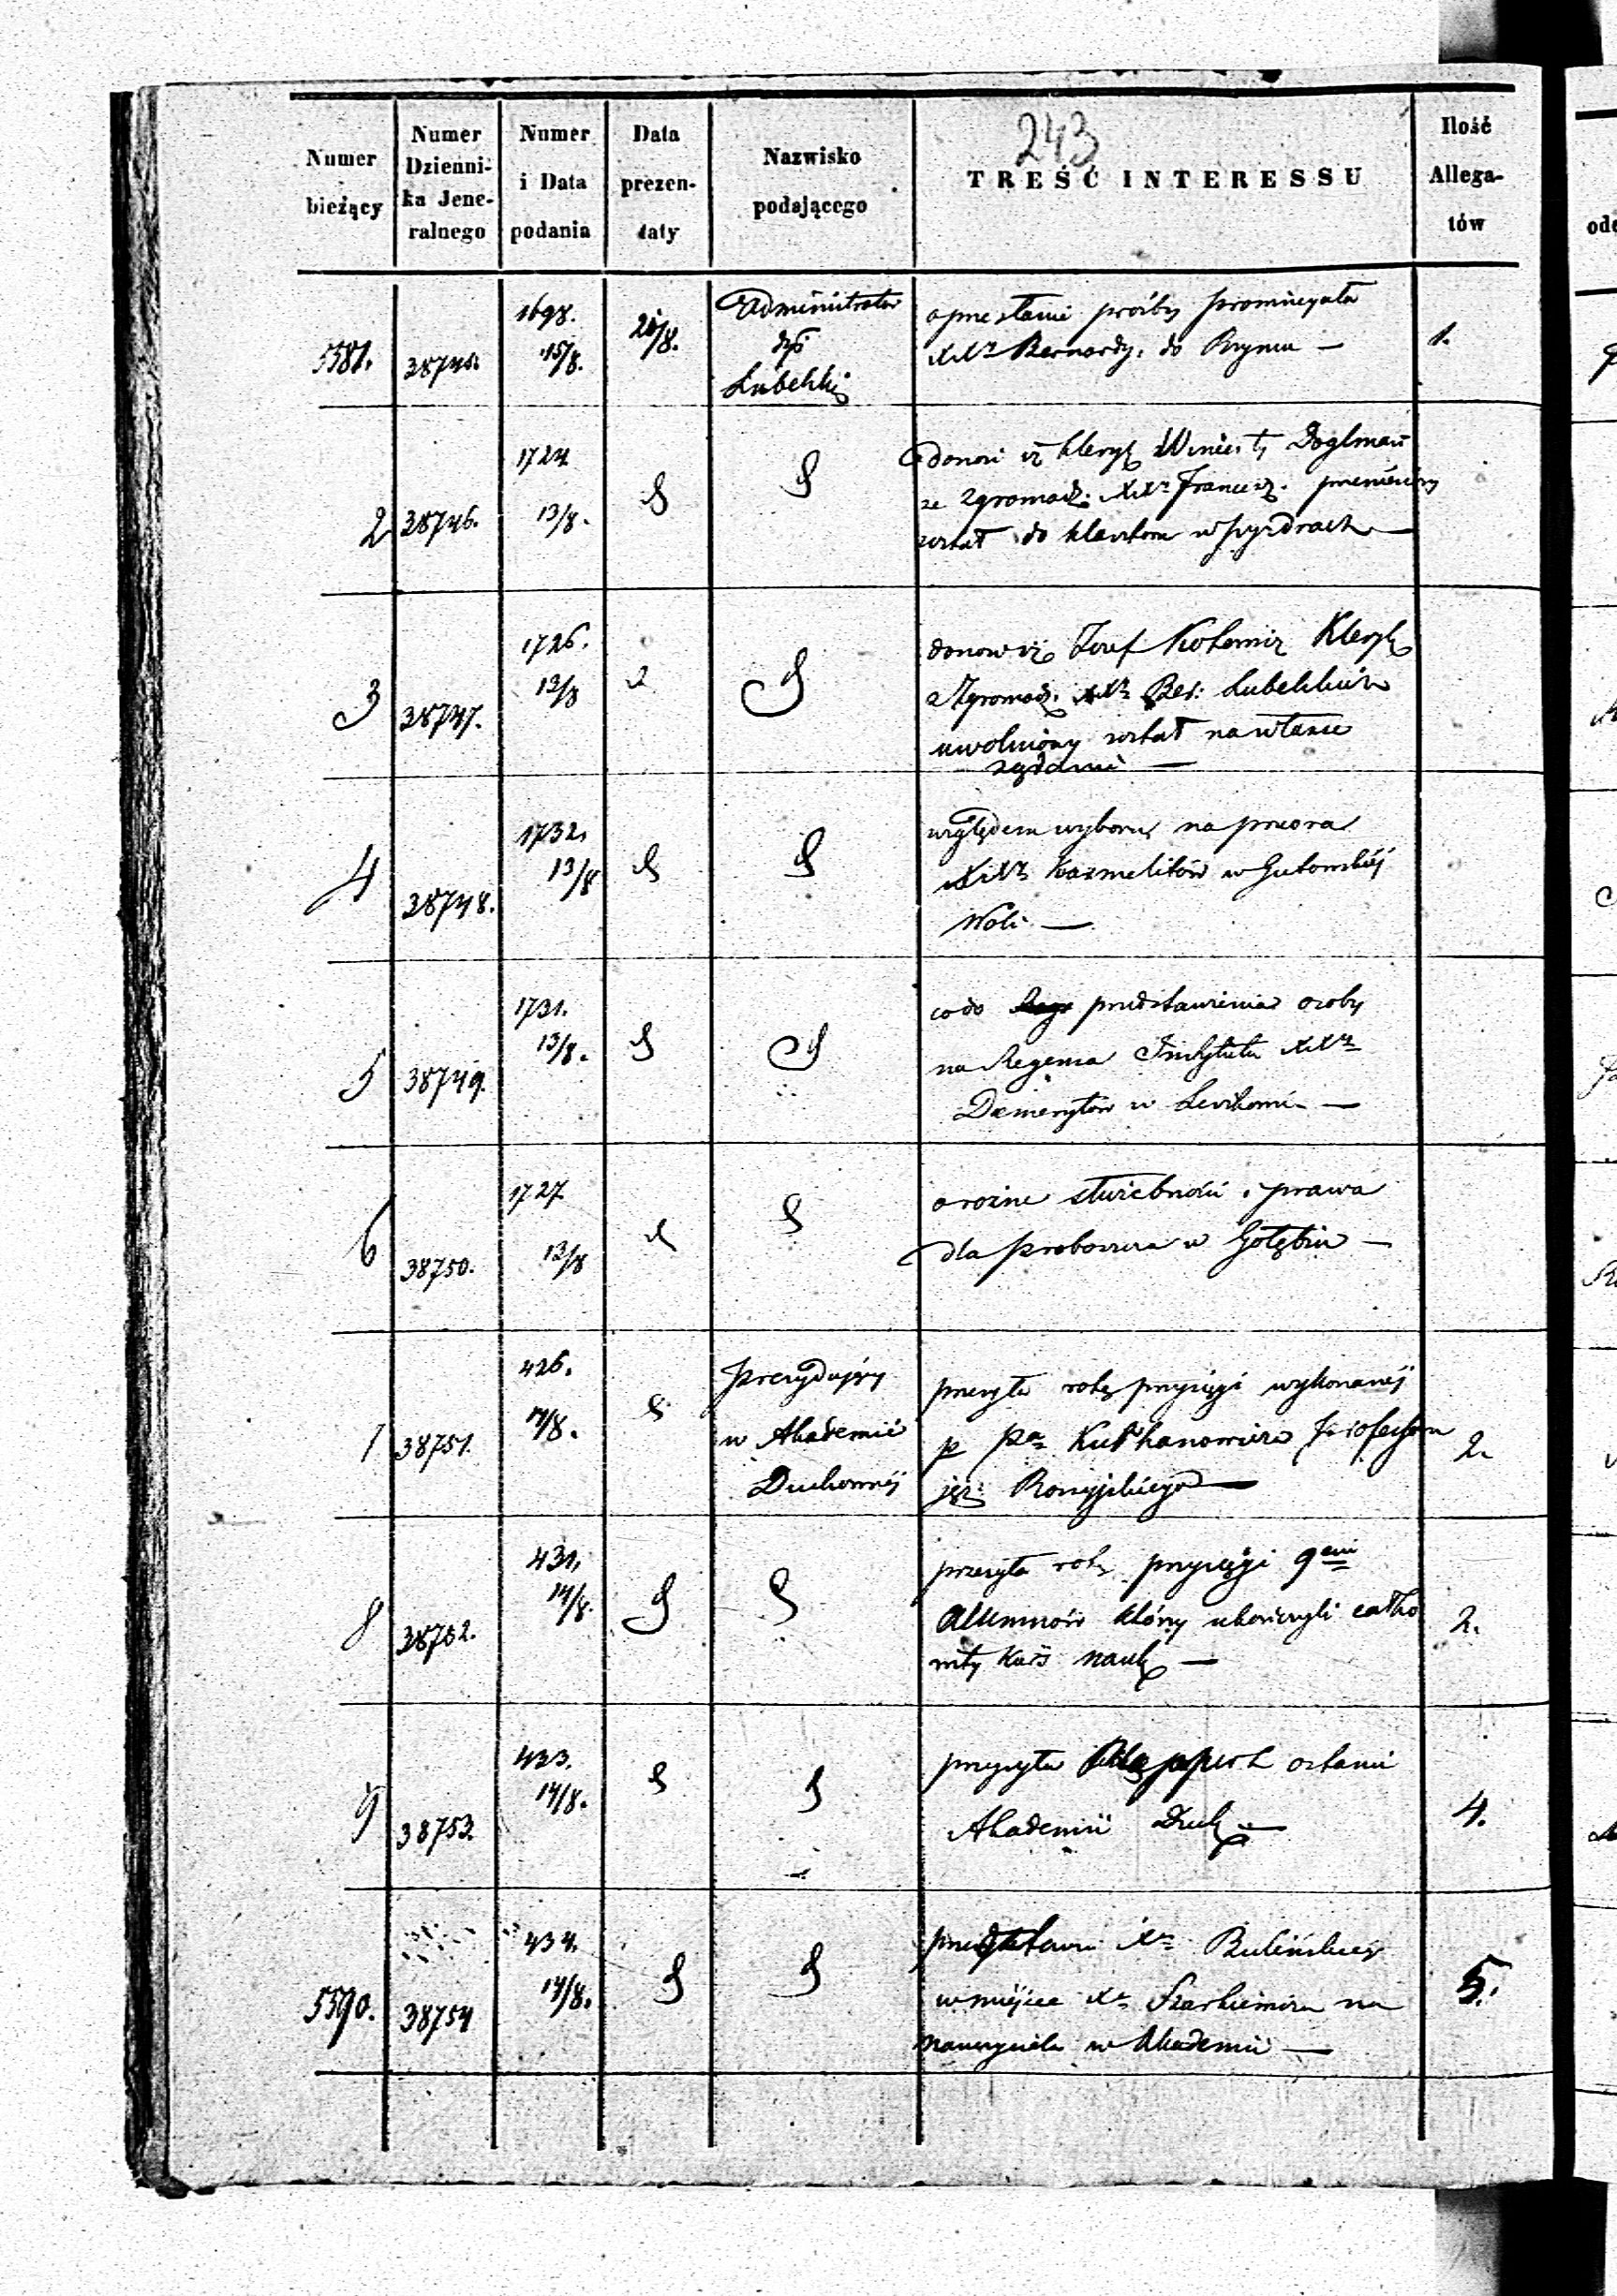 243
Numer bieżący
Numer Dzienni- ka Jene- ralnego
Numer i Data podania
Data prezen- taty
Nazwisko podającego
TREŚĆ INTERESSU
Ilość Allega- tów
5581. 38745. 1698. 15/8. 21/8. Administrator 1.
dyś.
Lubelski
o przesłanie prośby prowincyała
XXr Bernardy. do Rzymu —
2 38746. 1724 13/8.
donosi iż kleryk Wincenty
ze zgromadz. XXr Francisz. przeniesiony
został do klasztoru w Pyzdrach —
3 38747. 1726. 13/8
donosi iż Józef Kleryk
z Zgromadz. XXr Ber: Lubelskich
uwolniony został na własne
żądanie —
4 38748. 1732. 13/8
względem wyboru na przeora
XXr Karmelitów w Gutowskiéj
Woli —
5 38749. 1731. 13/8.
co do przedstawienia osoby
na Regensa Instytutu XXr
Demerytów w —
6 38750. 1727 13/8
o różne służebności i prawa
dla proboszcza w Gołębiu —
7 38751. 426. 14/8. Prezydujący 2.
w Akademii
Duchownéj
przesyła rotę przysięgi wykonanéj
p Pa Professora
jęz: Rossyjskiego —
8 38752. 431. 14/8. 2.
przesyła rotę przysięgi 9ciu
Alumnów którzy ukończyli całko
wity kurs nauk —
9 38753. 433. 14/8. 4.
przysyła o stanie
Akademii Duch —
5590. 38754 434. 14/8. 5.
przedstawia Xa Bulińskiego
w miejsce Xa na
nauczyciela w Akademii —